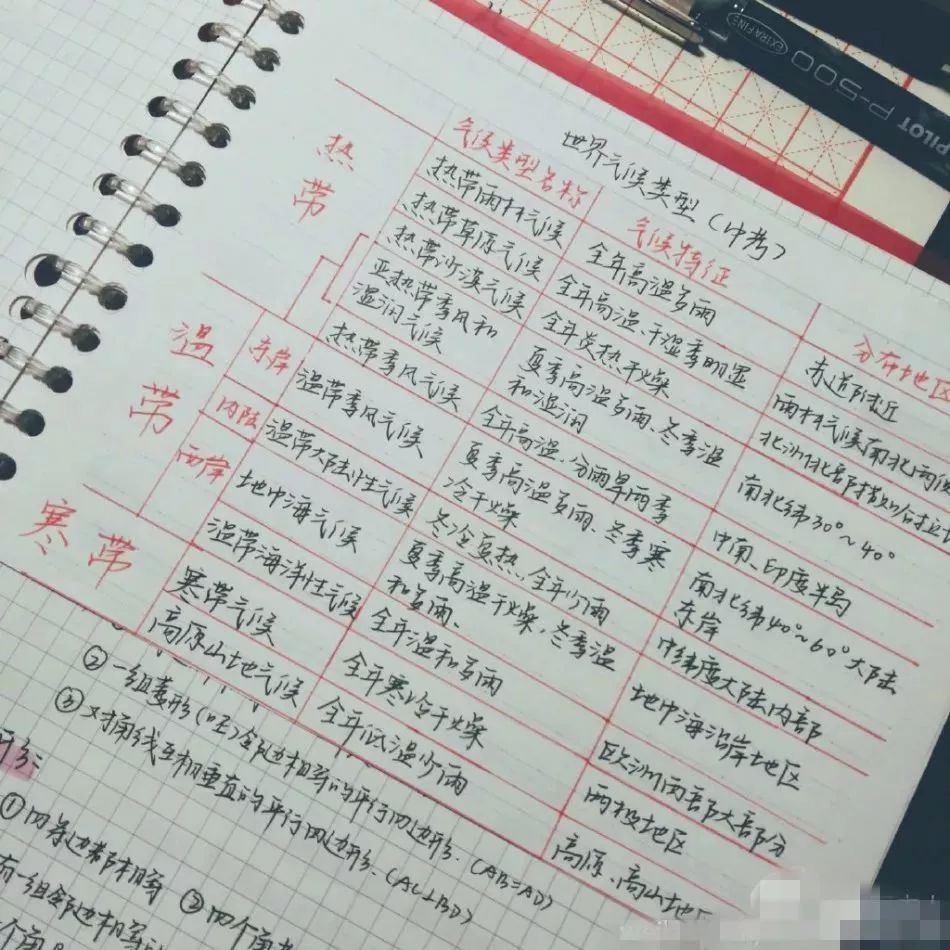 PILOT P-500 EXTRA FINE
世界气候类型(中考)
气候类型名称 气候特征 分布地区
热带
热带雨林气候 全年高温多雨 赤道附近
热带草原气候 全年高温、干湿季明显 雨林气候南北两侧
热带沙漠气候 全年炎热干燥 北洲北部撒哈拉
亚热带季风和湿润气候 夏季高温多雨、冬季温和湿润 南北纬30°~40°
热带季风气候 全年高温,分雨旱两季 中南、印度半岛
温带
东岸 温带季风气候 夏季高温多雨、冬季寒冷干燥 南北纬40°~60°大陆东岸
内陆 温带大陆性气候 冬冷夏热,全年少雨 中纬度大陆内部
西岸 地中海气候 夏季高温干燥,冬季温和多雨、 地中海沿岸地区
温带海洋性气候 全年温和多雨 欧洲西部大部分
寒带
寒带气候 全年寒冷干燥 两极地区
高原山地气候 全年低温少雨 高原、高山地
②一组菱形(口圣)邻边相等的平行四边形.(AB=AD)
③对角线互相垂直的平行四边形.(AC⊥BD)
①四条边都相等 ②四个角
有一组邻边相等
个角